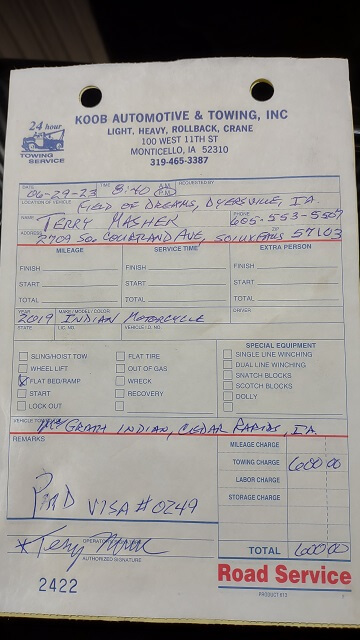 24 hour
TOWING SERVICE
KOOB AUTOMOTIVE & TOWING, INC
LIGHT, HEAVY, ROLLBACK, CRANE
100 WEST 11TH ST
MONTICELLO, IA 52310
319-465-3387
DATE 06-29-23 TIME 8:40 A.M. P.M. REQUESTED BY
LOCATION OF VEHICLE FIELD OF DREAMS, DYERSVILLE, IA.
NAME TERRY MASHER PHONE 605-553-5567
ADDRESS 2709 So. COURTLAND AVE, SOIUX FALLS ZIP 57103
MILEAGE SERVICE TIME EXTRA PERSON
FINISH FINISH FINISH
START START START
TOTAL TOTAL TOTAL
YEAR 2019 MAKE/MODEL/COLOR INDIAN MOTORCYCLE DRIVER
STATE LIC. NO. VEHICLE I.D. NO.
SLING/HOIST TOW FLAT TIRE SPECIAL EQUIPMENT
WHEEL LIFT OUT OF GAS SINGLE LINE WINCHING
FLAT BED/RAMP WRECK DUAL LINE WINCHING
START RECOVERY SNATCH BLOCKS
LOCK OUT SCOTCH BLOCKS
DOLLY
VEHICLE TOWED TO McGRATH INDIAN, CEDAR RAPIDS, IA.
REMARKS
MILEAGE CHARGE
TOWING CHARGE 600 00
LABOR CHARGE
STORAGE CHARGE
PAID VISA #0249
OPERATOR'S SIGNATURE
AUTHORIZED SIGNATURE
TOTAL 600 00
2422
Road Service
PRODUCT 613